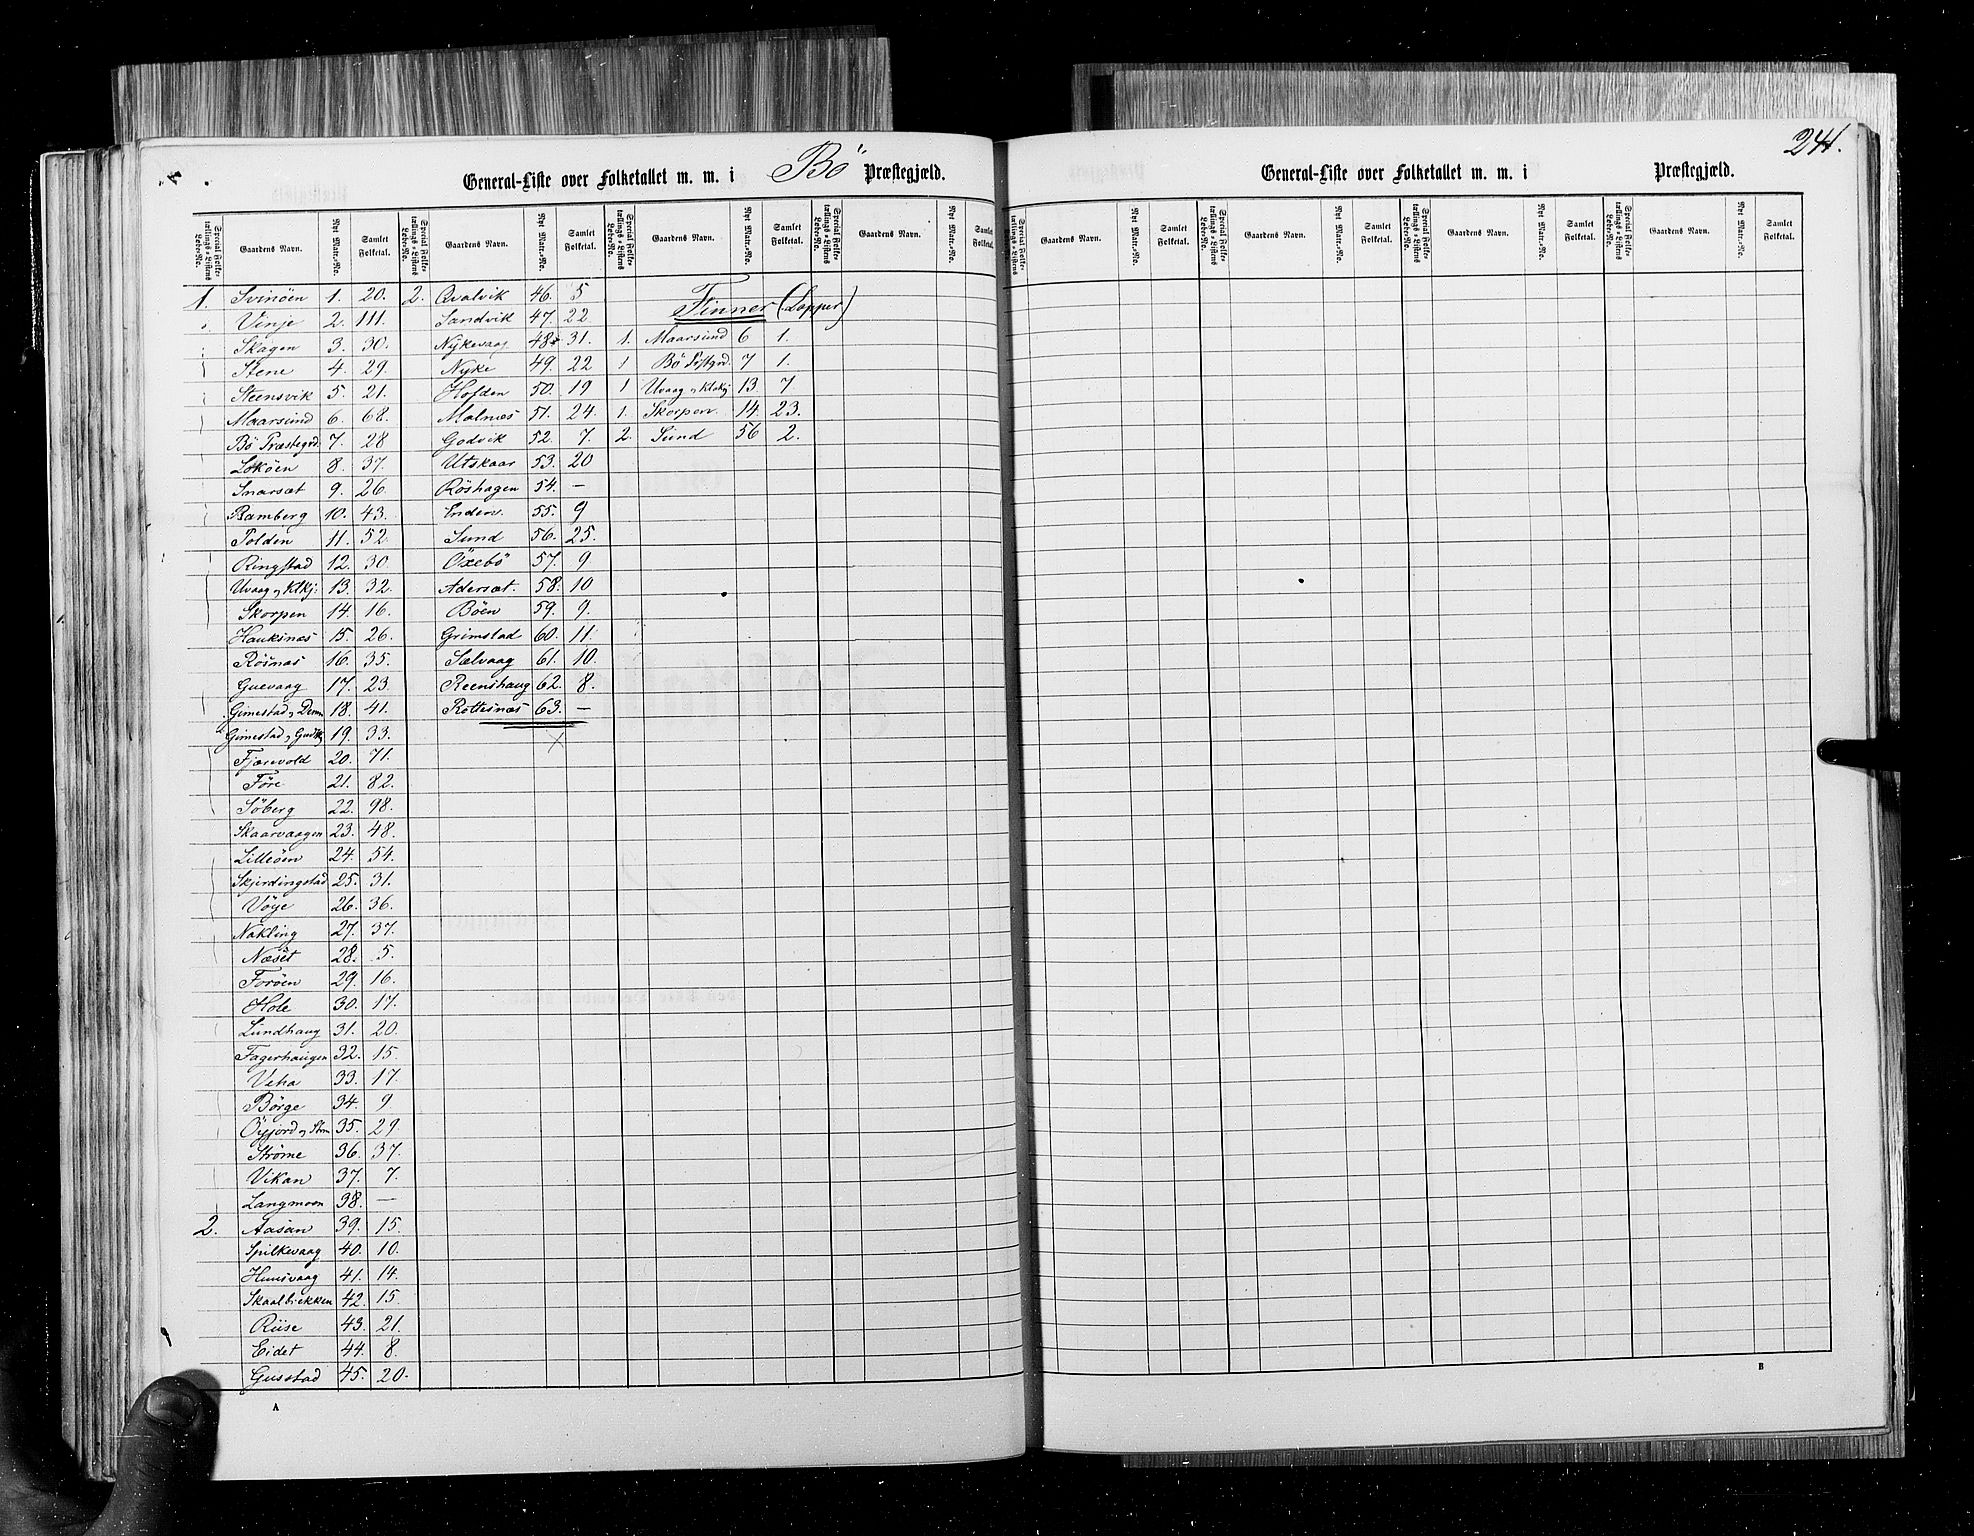 General-Liste over Folketallet m. m. i Bö Præstegjæld.
Special Folketællings-Listens Løbe-No. Gaardens Navn. Nyt Matr.-No. Samlet Folketal.
1. Svinöen 1. 20.
Vinje 2. 111.
Skagen 3. 30.
Stene 4. 29.
Steensvik 5. 21.
Maarsund 6. 68.
Bö Præstegrd. 7. 28
Loköen 8. 37.
Snarsæt 9. 26.
Ramberg 10. 43.
Tolden 11. 52.
Ringstad 12. 30.
Uvaag og Klkj: 13. 32.
Skorpen 14. 16.
Hauksnæs 15. 26.
Rösnæs 16. 35.
Guevaag 17. 23.
Gimestad og 18. 41.
Gimestad og 19. 33.
Fjærevold 20. 71.
Före 21. 82.
Söberg 22. 98.
Skaarvaagen 23. 48.
Lilleöen 24. 54.
Skjerdingstad 25. 31.
Vöje 26. 36.
Nakling 27. 37.
Næset 28. 5.
Foröen 29. 16.
Hole 30. 17.
Lundhaug 31. 20.
Fagerhaugen 32. 15.
Veha 33. 17.
Börge 34. 9
Öyjord og 35. 29.
Ströme 36. 37.
Vikan 37. 7.
Langmoen 38. —
2. Aasan 39. 15.
Spilkevaag 40. 10.
Hunsvaag 41. 14.
Skaalbrekken 42. 15.
Riise 43. 21.
Eidet 44. 8.
Guvstad 45. 20.
A
Special Folketællings-Listens Løbe-No. Gaardens Navn. Nyt Matr.-No. Samlet Folketal.
2. Qvalvik 46. 5
Sandvik 47. 22
Nykevaag 48. 31.
Nyke 49. 22
Hofden 50. 19
Malnes 51. 24.
Godvik 52. 7.
Utskaar 53. 20
Röshagen 54. —
Enden 55. 9
Sund 56. 25.
Öxebö 57. 9
Adersæt. 58. 10
Böen 59. 9.
Grimstad 60. 11.
Sælvaag 61. 10.
Reenshaug 62. 8.
Rottesnæs 63. —
Special Folketællings-Listens Løbe-No. Gaardens Navn. Nyt Matr.-No. Samlet Folketal.
Finner (Lapper)
1. Maarsund 6 1.
1 Bö Pestgrd. 7 1.
1 Uvaag og Klakj 13. 7
1. Skorpen 14. 23.
2. Sund 56 2.
Special Folketællings-Listens Løbe-No. Gaardens Navn. Nyt Matr.-No. Samlet
241.
General-Liste over Folketallet m. m. i Præstegjæld.
Special Folketællings-Listens Løbe-No. Gaardens Navn. Nyt Matr.-No. Samlet Folketal.
Special Folketællings-Listens Løbe-No. Gaardens Navn. Nyt Matr.-No. Samlet Folketal.
Special Folketællings-Listens Løbe-No. Gaardens Navn. Nyt Matr.-No. Samlet Folketal.
Special Folketællings-Listens Løbe-No. Gaardens Navn. Nyt Matr.-No. Samlet Folketal.
B